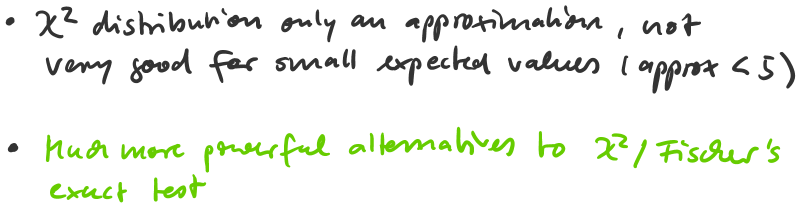 • χ² distribution only an approximation, not
very good for small expected values (approx < 5)
• Much more powerful alternatives to χ²/Fischer's
exact test